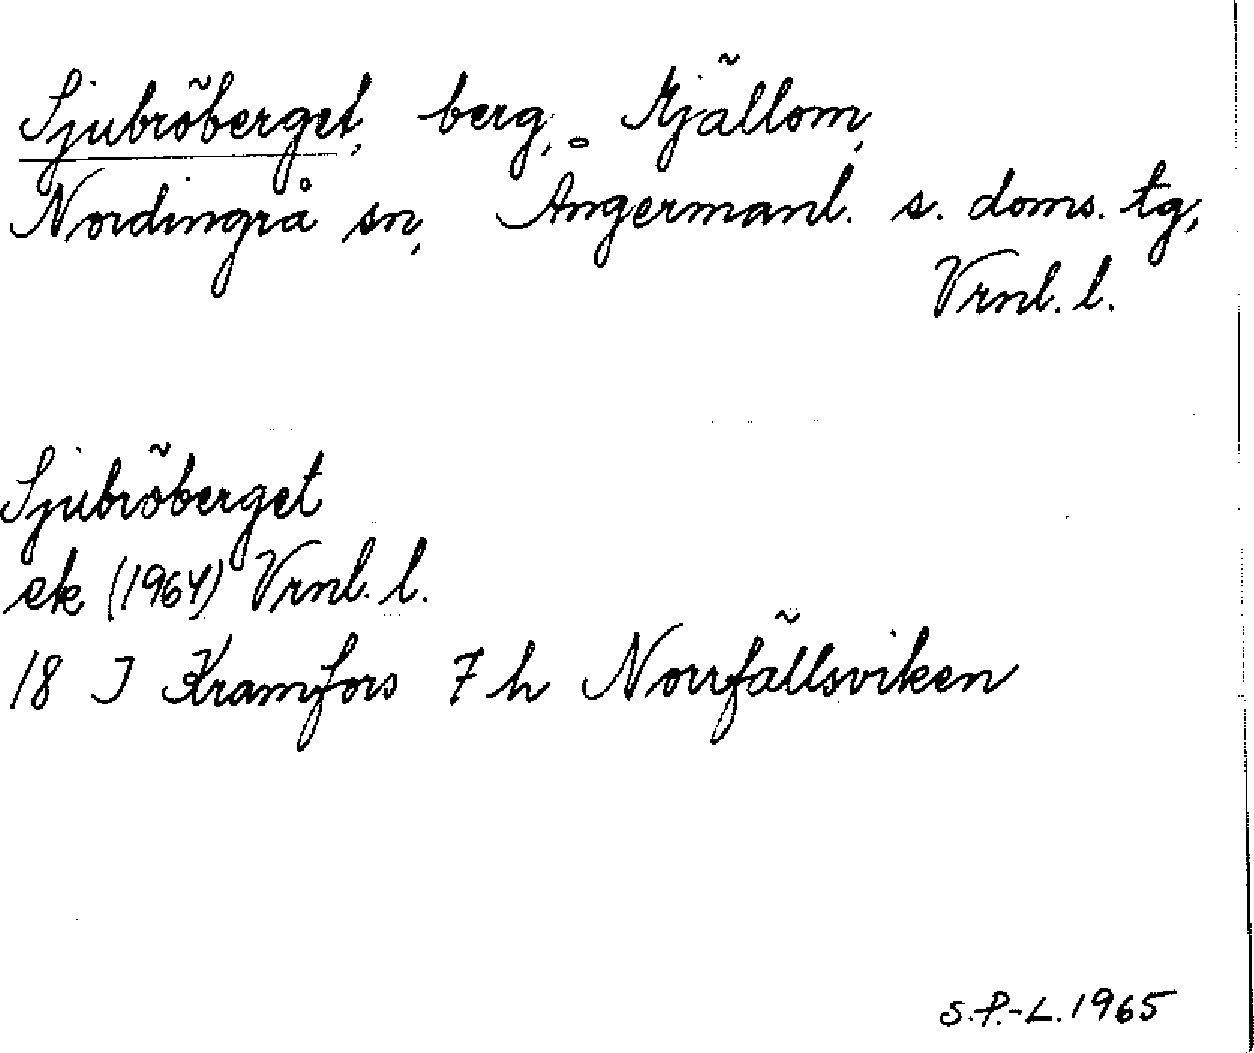 Sjubröberget, berg, Mjällom,
Nordingrå sn, Ångermanl. s. doms. tg,
Vrnl. l.
Sjubröberget
ek (1964) Vrnl. l.
18 J Kramfors 7 h Norrfällsviken
S.P.-L. 1965